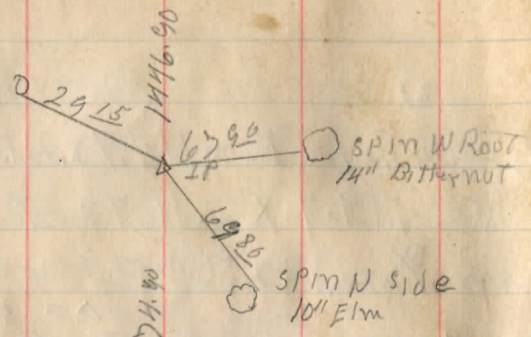 1446.90
29 15
IP
SPin W Root
14" Bitternut
69 86
SPin N Side
10" Elm